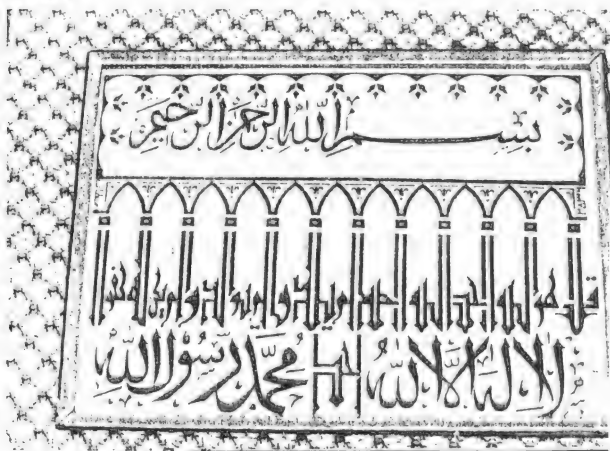 بسم الله الرحمن الرحيم
قل هو الله احد الله الصمد لم يلد ولم يولد ولم يكن له كفوا
لا اله الا الله احد محمد رسول الله